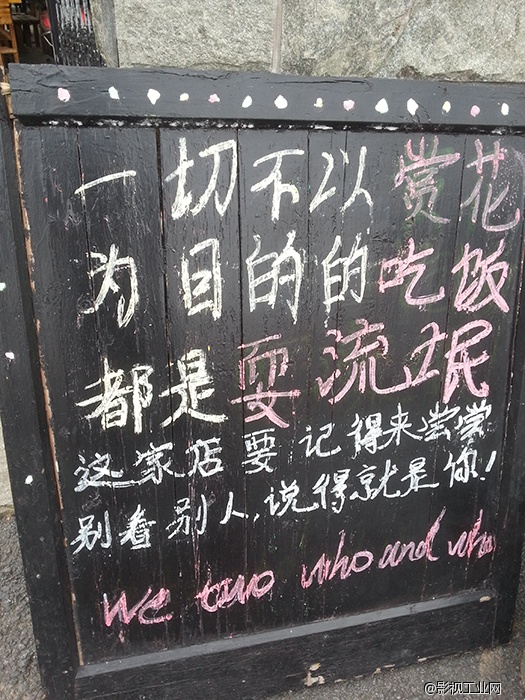 一切不以赏花
为目的的吃饭
都是耍流氓
这家店要记得来尝尝
别看别人,说得就是你!
we two who and who
@影视工业网